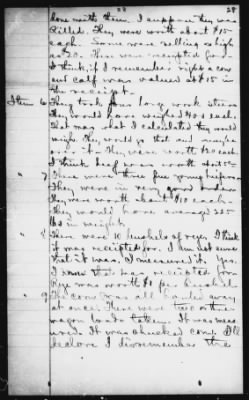 28
done with them. I suppose they was
killed. They were worth about $15
each. Some were selling as high
as 20. These was receipted for.
I think, if I remember right a cow
and calf was valued at $15 in
the receipt.
Item 6. They took four long work steers
They would have weighed 400 each.
That was what I calculated they would
weigh. They would go that and maybe
over it. They were worth $20 each
I think beef was worth about 5c
" 7. There were three fine young heifers
They were in very good order
They were worth about $10 each.
They would have averaged 225
lbs in weight.
" 8. There were 10 bushels of rye. I think
it was receipted for. I am not sure
that it was. I measured it. Yes.
I know this was receipted for
Rye was worth $1 per bushel.
" 9. The corn was all hauled away
at once. There were two or three
wagon loads taken. It was meas
ured. It was shucked corn. I'll
declare I disremember the